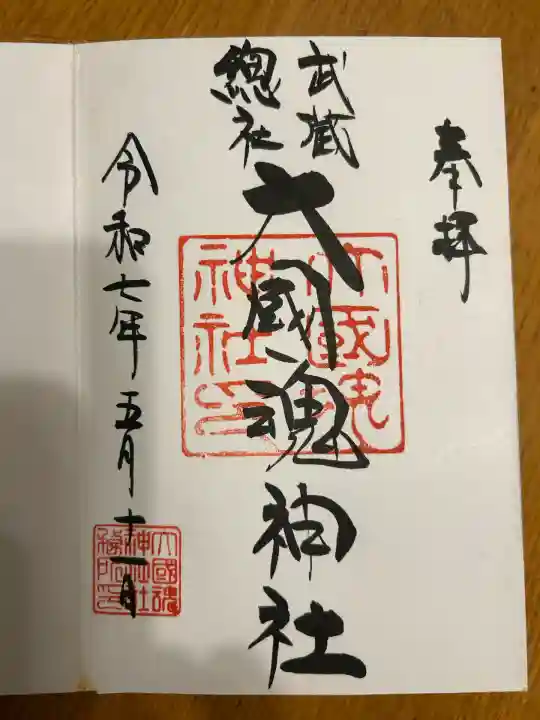 奉拝
武蔵
總社
大國魂神社
大國魂
神社印
令和七年五月十一日
大國魂
神社社
務所印